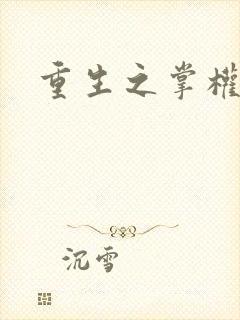 重生之掌權
沉雪